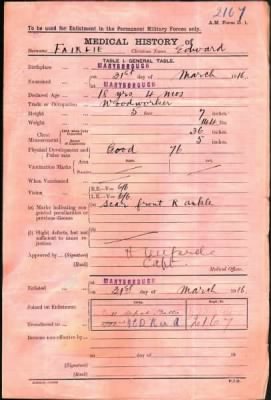 2167
A.M. Form D. 1.
To be used for Enlistment in the Permanent Military Forces only.
MEDICAL HISTORY of
Surname FAIRLIE Christian Name Edward
TABLE I.-GENERAL TABLE.
Birthplace MARYBOROUGH
Examined 21st day of March 1916.
MARYBOROUGH
Declared Age 18 yrs 4 mos
Trade or Occupation Woodworker
Height 5 feet 7 inches
Weight lbs.
Chest Measurement 36 inches
5 inches
Physical Development and Pulse rate Good 76
Vaccination Marks
When Vaccinated
Vision R.E.-V= 6/6
L.E.-V= 6/6
(a) Marks indicating congenital peculiarities or previous disease Scar front R ankle
(b) Slight defects, but not sufficient to cause rejection
Approved by (Signature)
(Rank) Capt
Medical Officer.
Enlisted MARYBOROUGH
21st day of March 1916.
Joined on Enlistment
Transferred to 2167
Became non-effective by
day of
(Signature)
(Rank)
P.T.O.